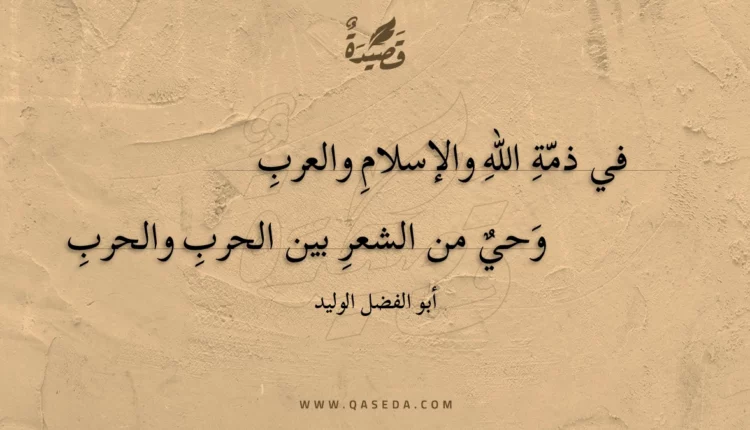 قَصِيدَةٌ
في ذمّةِ اللهِ والإسلامِ والعربِ
وَحيٌ من الشعرِ بين الحربِ والحربِ
أبو الفضل الوليد
WWW.QASEDA.COM